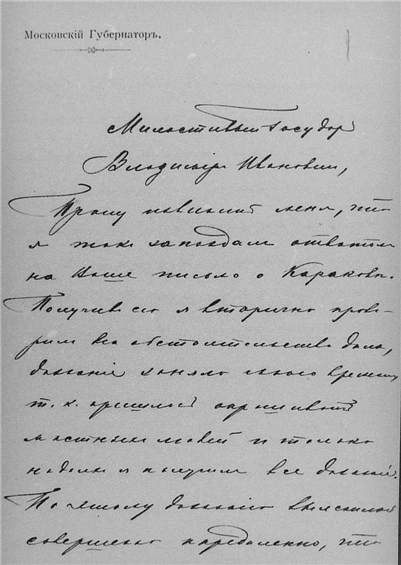 Московскій Губернаторъ.
Милостивый Государь
Владиміръ Ивановичъ,
Прошу извинить меня, что
я такъ запоздалъ отвѣтомъ
на Ваше письмо о
Получивъ его я вторично провѣ-
рилъ все обстоятельства дѣла,
дознаніе заняло много времени,
т. к. пришлось опрашивать
мѣстныхъ людей и только
на дняхъ я получилъ все дознаніе.
По этому дознанію
совершенно что